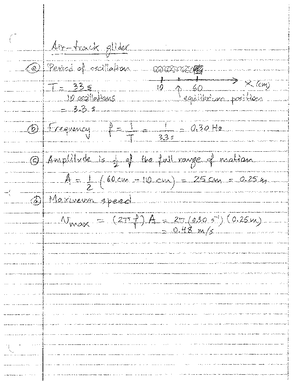 Air-track glider
(a) Period of oscillation
T = 33 s / 10 oscillations
= 3.3 s
10 60 x (cm)
equilibrium position
(b) Frequency f = 1/T = 1/3.3 s = 0.30 Hz
(c) Amplitude is 1/2 of the full range of motion
A = 1/2 (60 cm - 10 cm) = 25 cm = 0.25 m
(d) Maximum speed
v max = (2π f) A = 2π (0.30 s⁻¹) (0.25 m)
= 0.48 m/s